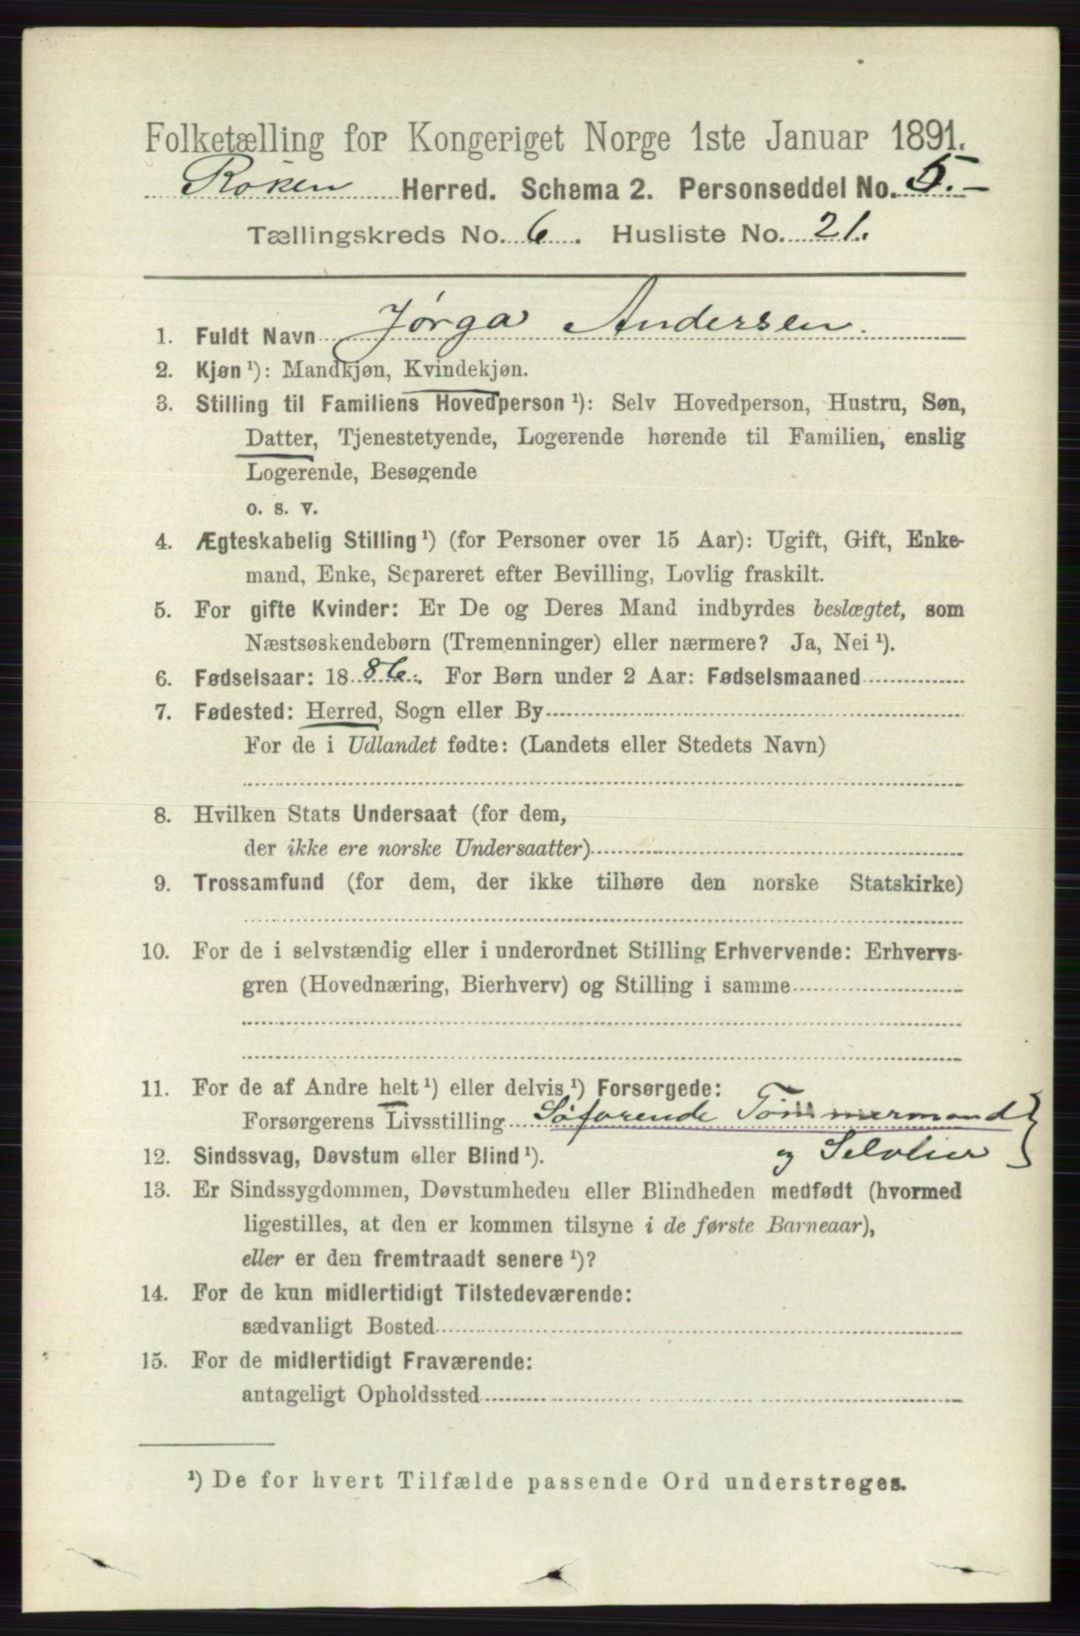 Folketælling for Kongeriget Norge 1ste Januar 1891.
Röken Herred. Schema 2. Personseddel No. 5.-
Tællingskreds No. 6. Husliste No. 21.
1. Fuldt Navn Jörga Andersen.
2. Kjøn ¹): Mandkjøn, Kvindekjøn.
3. Stilling til Familiens Hovedperson ¹): Selv Hovedperson, Hustru, Søn,
Datter, Tjenestetyende, Logerende hørende til Familien, enslig
Logerende, Besøgende
o. s. v.
4. Ægteskabelig Stilling ¹) (for Personer over 15 Aar): Ugift, Gift, Enke-
mand, Enke, Separeret efter Bevilling, Lovlig fraskilt.
5. For gifte Kvinder: Er De og Deres Mand indbyrdes beslægtet, som
Næstsøskendebørn (Tremenninger) eller nærmere? Ja, Nei ¹).
6. Fødselsaar: 1886. For Børn under 2 Aar: Fødselsmaaned
7. Fødested: Herred, Sogn eller By
For de i Udlandet fødte: (Landets eller Stedets Navn)
8. Hvilken Stats Undersaat (for dem,
der ikke ere norske Undersaatter)
9. Trossamfund (for dem, der ikke tilhøre den norske Statskirke)
10. For de i selvstændig eller i underordnet Stilling Erhvervende: Erhvervs-
gren (Hovednæring, Bierhverv) og Stilling i samme
11. For de af Andre helt ¹) eller delvis ¹) Forsørgede:
Forsørgerens Livsstilling Söfarende Tömmermand
og Selveier
12. Sindssvag, Døvstum eller Blind ¹).
13. Er Sindssygdommen, Døvstumheden eller Blindheden medfødt (hvormed
ligestilles, at den er kommen tilsyne i de første Barneaar),
eller er den fremtraadt senere ¹)?
14. For de kun midlertidigt Tilstedeværende:
sædvanligt Bosted
15. For de midlertidigt Fraværende:
antageligt Opholdssted
¹) De for hvert Tilfælde passende Ord understreges.